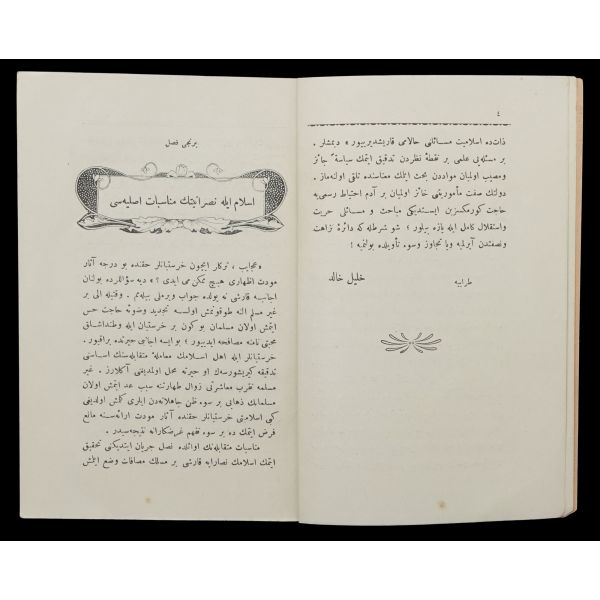 ٤
ذاتده اسلاميت مسائلنی حالامی قاريشديرييور » ديمشلر .
بر مسئله‌يی علمی بر نقطهٔ نظردن تدقيق ايتمك سياسةً جائز
ومصيب اولميان موادردن بحث ايتمك معناسنده تلقی اولنه‌ماز .
دولتك صفت مأموريتنی حائز اولميان بر آدم احتياط رسمی‌يه
حاجت كورمكسزين ايستديكی مباحث و مسائلی حريت
واستقلال كامل ايله يازه بيلور ؛ شو شرطله كه دائرهٔ نزاهت
ونصفتدن آيرلميه ويا تجاوز وسوء تأويلده بولنميه !
طرابيه
خليل خالد
برنجی فصل
اسلام ايله نصرانيتك مناسبات اصليه‌سی
«عجايب ، تركلر ايچون خرستيانلر حقنده بو درجه آثار
مودت اظهاری هيچ ممكن‌می ايدی ؟ » ديه سؤالرده بولنان
اجانبه قارشی نه يولده جواب ويرملی بيلمم . وقتيله الی بر
غير مسلم النه طوقونمش اولسه تجديد وضوئه حاجت حس
ايتمش اولان مسلمان بو كون بر خرستيان ايله وطنداشلق
محبتی نامنه مصافحه ايدييور ! بو ايسه اجانبی حيرتده براقيور .
خرستيانلر ايله اهل اسلامك معاملهٔ متقابله‌سنك اساسنی
تدقيقه كيريشورسه‌ك او حيرته محل اولمديغنی آكلارز . غير
مسلمه تقرب معاشرتی زوال طهارتنه سبب عد ايتمش اولان
مسلمانك ذهابی بر سوء ظن جاهلانه‌دن ايلری كلمش اولديغی
كبی اسلاميتی خرستيانلر حقنده آثار مودت ارائه‌سنه مانع
فرض ايتمك ده بر سوء تفهم غرضكارانه نتيجه‌سيدر .
مناسبات متقابله‌نك اوائلده فصل جريان ايتديكنی تحقيق
ايتمك اسلامك نصارايه قارشی بر مسلك مصافات وضع ايتمش